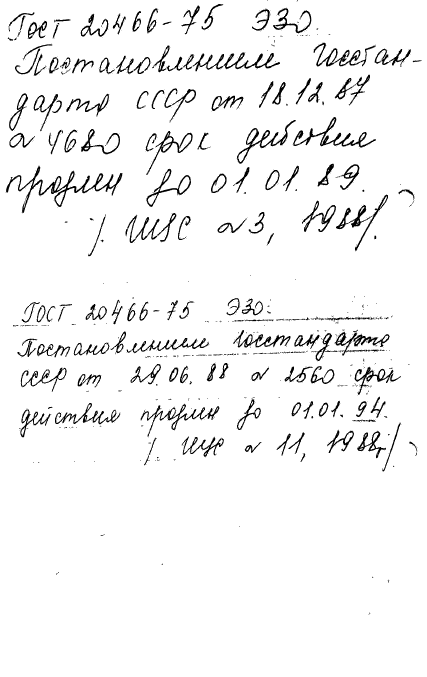 ГОСТ 20466-75 ЭЗО.
Постановлением Госстан-
дарта СССР от 18.12.87
№ 4680 срок действия
продлен до 01.01.89.
/ ИУС № 3, 1988/.
ГОСТ 20466-75 ЭЗО.
Постановлением Госстандарта
СССР от 29.06.88 № 2560 срок
действия продлен до 01.01.94.
/ ИУС № 11, 1988г/